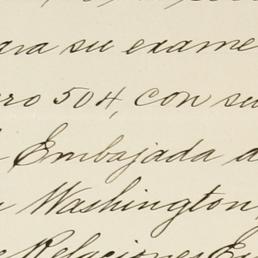 ara su exame
ro 504, con su
Embajada d
Washington,
Relaciones Ex